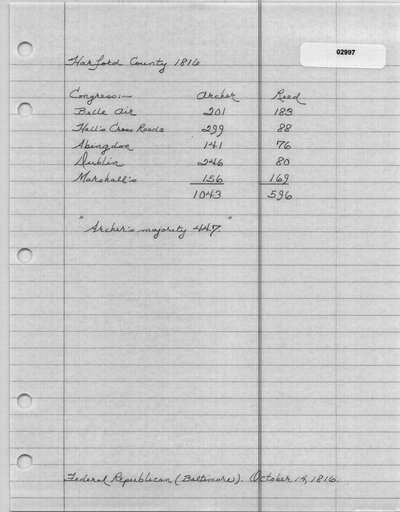 02997
Harford County 1816
Congress:- Archer Reed
Belle Air 201 183
Hall's Cross Roads 299 88
Abingdon 141 76
Dublin 246 80
Marshall's 156 169
1043 596
"Archer's majority 447."
Federal Republican (Baltimore). October 14, 1816.